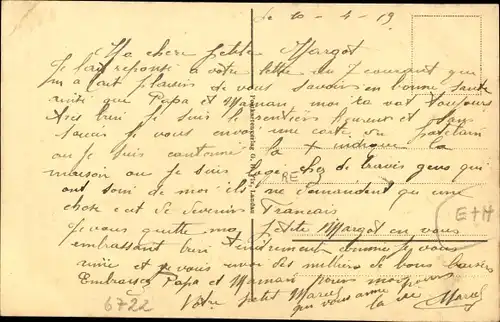 le 10-4-19
Ma chere petite Margot
Je fait reponse à votre lettre du 7 courant qui
m'a fait plaisirs de vous savoirs en bonne santé
ainsi que Papa et Maman, moi ça va toujours
tres bien je suis le sentiers fleurent et san
soucis je vous envoi une carte du patelain
ou je suis cantonné la + indique la
maison ou je suis chez de braves gens qui
ont soin de moi ils ne demandent que une
chose c'est de devenirs Francais
Je vous quitte ma petite Margot en vous
embrassant bien tendrement comme je vous
aime et je vous envoi des milliers de bons baisers
Embrassez Papa et Maman pours moi
Votre petit Marcel qui vous aime pours la vie
Marcel
RE
E+H
6722
Landau